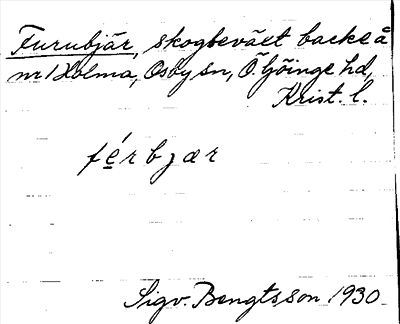 Furubjär, skogbeväxt backe å
nr 1 Holma, Osby sn, Ö. Göinge hd,
Krist. l.
férbjær
Sigv. Bengtsson 1930